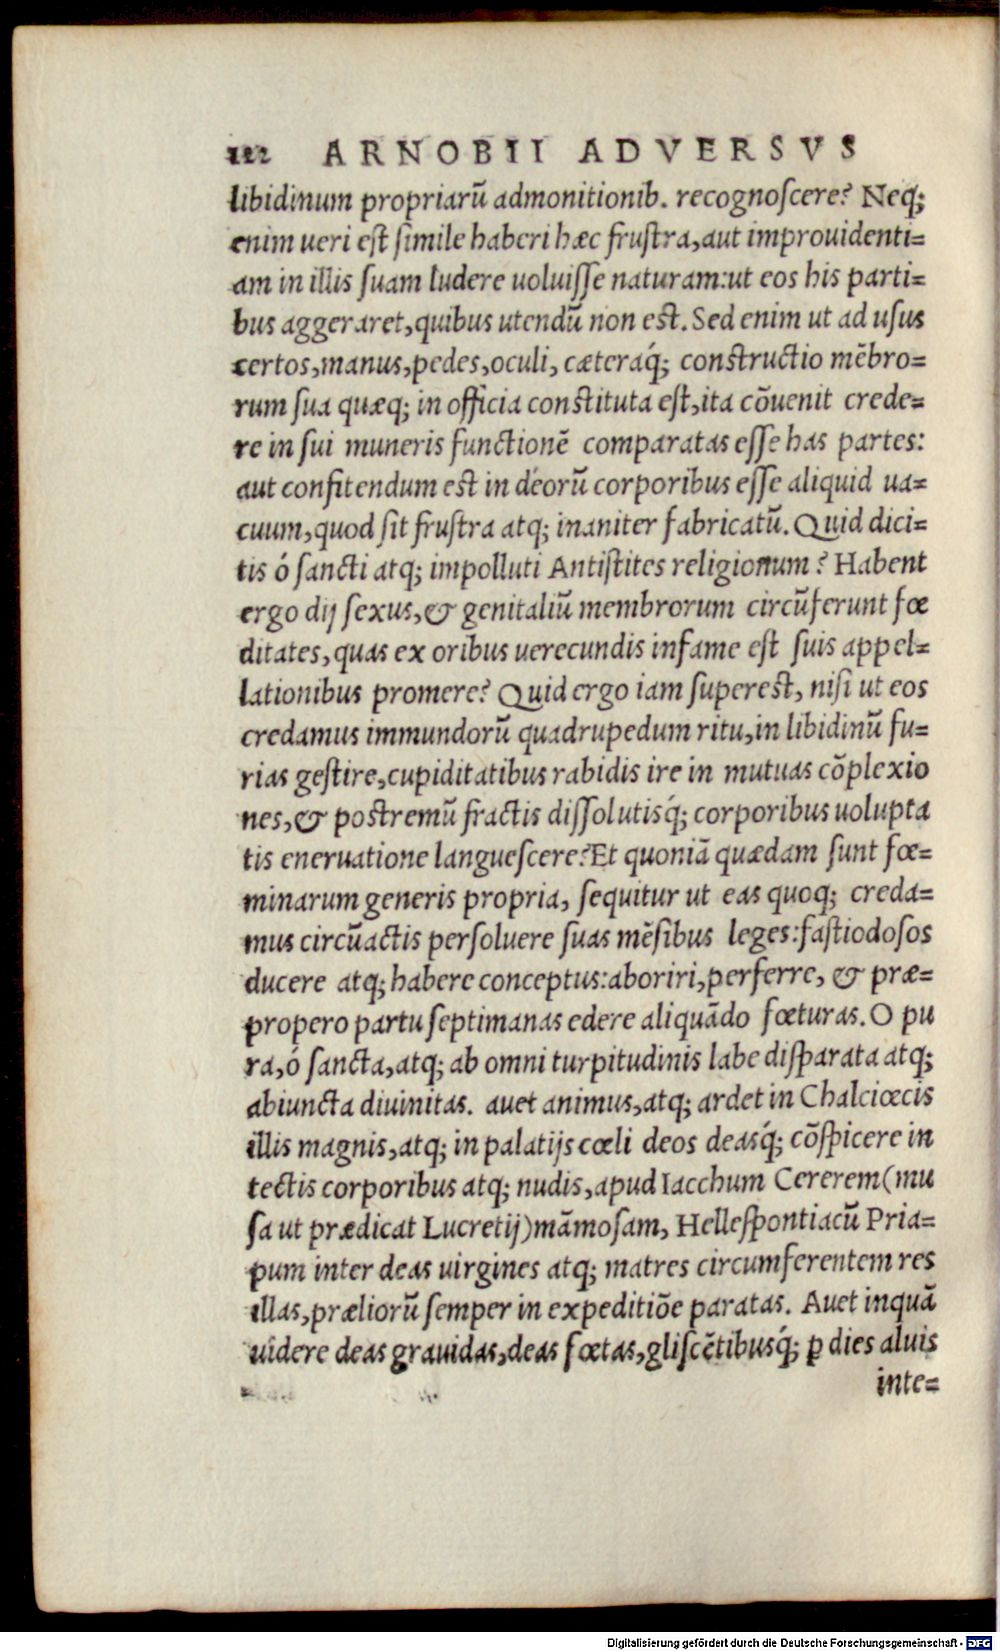 112 ARNOBII ADVERSVS
libidinum propriarū admonitionib. recognoscere? Neq;
enim ueri est simile haberi hæc frustra, aut improuidenti=
am in illis suam ludere uoluisse naturam: ut eos his parti=
bus aggeraret, quibus utendū non est. Sed enim ut ad usus
certos, manus, pedes, oculi, cæteraq́; constructio mēbro=
rum sua quæq; in officia constituta est, ita cōuenit crede=
re in sui muneris functionē comparatas esse has partes:
aut confitendum est in deorū corporibus esse aliquid ua=
cuum, quod sit frustra atq; inaniter fabricatū. Quid dici=
tis ó sancti atq; impolluti Antistites religionum? Habent
ergo dij sexus, & genitaliū membrorum circūferunt fœ
ditates, quas ex oribus uerecundis infame est suis appel=
lationibus promere? Quid ergo iam superest, nisi ut eos
credamus immundorū quadrupedum ritu, in libidinū fu=
rias gestire, cupiditatibus rabidis ire in mutuas cōplexio
nes, & postremū fractis dissolutisq́; corporibus uolupta
tis eneruatione languescere? Et quoniā quædam sunt fœ=
minarum generis propria, sequitur ut eas quoq; creda=
mus circūactis persoluere suas mēsibus leges: fastiodosos
ducere atq; habere conceptus: aboriri, perferre, & præ=
propero partu septimanas edere aliquādo fœturas. O pu
ra, ó sancta, atq; ab omni turpitudinis labe disparata atq;
abiuncta diuinitas. auet animus, atq; ardet in Chalciœcis
illis magnis, atq; in palatijs cœli deos deasq́; cōspicere in
tectis corporibus atq; nudis, apud Iacchum Cererem (mu
sa ut prædicat Lucretij) māmosam, Hellespontiacū Pria=
pum inter deas uirgines atq; matres circumferentem res
illas, præliorū semper in expeditiōe paratas. Auet inquā
uidere deas grauidas, deas fœtas, gliscētibusq́; ꝑ dies aluis
inte=
Digitalisierung gefördert durch die Deutsche Forschungsgemeinschaft - DFG